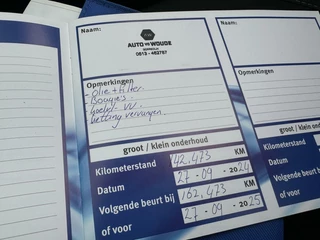 Naam:
AUTO VD WOUDE
0513 - 462787
Opmerkingen
- olie + filter
- Bougies
- koelvl. vv.
- ketting vervangen
groot / klein onderhoud
Kilometerstand 142,473 KM
Datum 27 - 09 - 2024
Volgende beurt bij 162,473 KM
of voor 27 - 09 - 2025
Naam:
Opmerkingen
groot /
Kilometer
Datum
Volgende
of voor